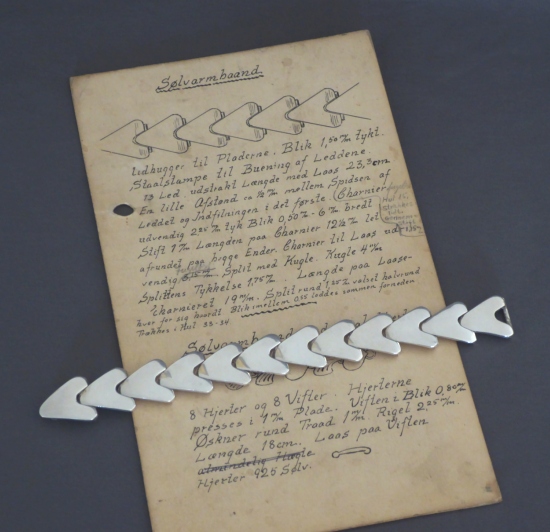 Sølvarmbaand.
Udhugger til Pladerne. Blik 1,50 m/m tykt.
Staalstampe til Buening af Leddene.
13 Led udstrakt Længde med Laas 23,3 cm
En lille Afstand ca ¼ m/m mellem Spidsen af
Leddet og Indfilningen i det første. Charnier
udvendig 2,25 m/m tyk Blik 0,50 - 6 m/m bredt
Stift 1 m/m Længden paa Charnier 12½ m/m let
afrundet paa begge Ender. Charnier til Laas ud-
vendig Split med Kugle. Kugle 4 m/m
Splittens Tykkelse 1,75 m/m. Længde paa Laase-
charnieret 19 m/m. Split rund 1,25 m/m valset halvrund
hver for sig haardt. Blik imellem Oss loddes sammen forneden
Trækkes i Hul 33-34.
Sølvarmbaand
8 Hjerter og 8 Vifter. Hjerterne
presses i 1 m/m Plade. Viften i Blik 0,80 m/m
Øskner rund Traad 1 m/m Rigel 2,25 m/m.
Længde 18 cm. Laas paa Viften
almindelig
Hjerter 925 Sølv.